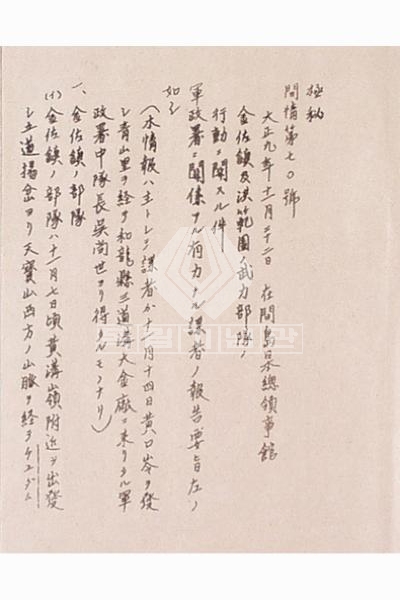 極秘
間情第七〇號
大正九年十一月二十二日 在間島日本總領事館
金佐鎮及洪範圖ノ武力部隊ノ
行動ニ關スル件
軍政署ニ關係アル有力ナル諜者ノ報告要旨左ノ
如シ
(本情報ハ主トシテ諜者カ十一月十四日黄口岺ヲ發
シ青山里ヲ経テ和龍縣三道溝大金廠ニ来リタル軍
政署中隊長吳尚世ヨリ得タルモノナリ)
一、金佐鎮ノ部隊
(イ)金佐鎮ノ部隊ハ十一月七日頃黄溝嶺附近ヲ出發
シ五道揚岔ヨリ天寶山西方ノ山脈ヲ経テ